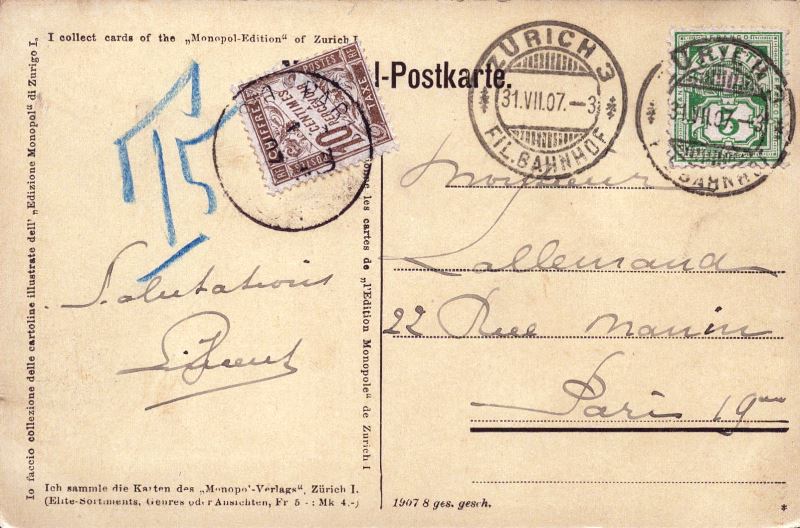 I collect cards of the „Monopol-Edition“ of Zurich I.
Io faccio collezione delle cartoline illustrate dell' „Edizione Monopol“ di Zurigo I.
T5
10
CENTIMES
CHIFFRE
TAXE
POSTES
l-Postkarte.
ZÜRICH 3
31.VII.07.-3
FIL. BAHNHOF
31.VII.07.-3
BAHNHOF
5
les cartes de „l'Edition Monopole“ de Zurich I
Salutations
Monsieur
Lallemand
22 Rue Manin
Paris 19me
Ich sammle die Karten des „Monopol-Verlags“, Zürich I.
(Elite-Sortiments, Genres oder Ansichten, Fr 5 - : Mk 4.-)
1907 8 ges. gesch.
*